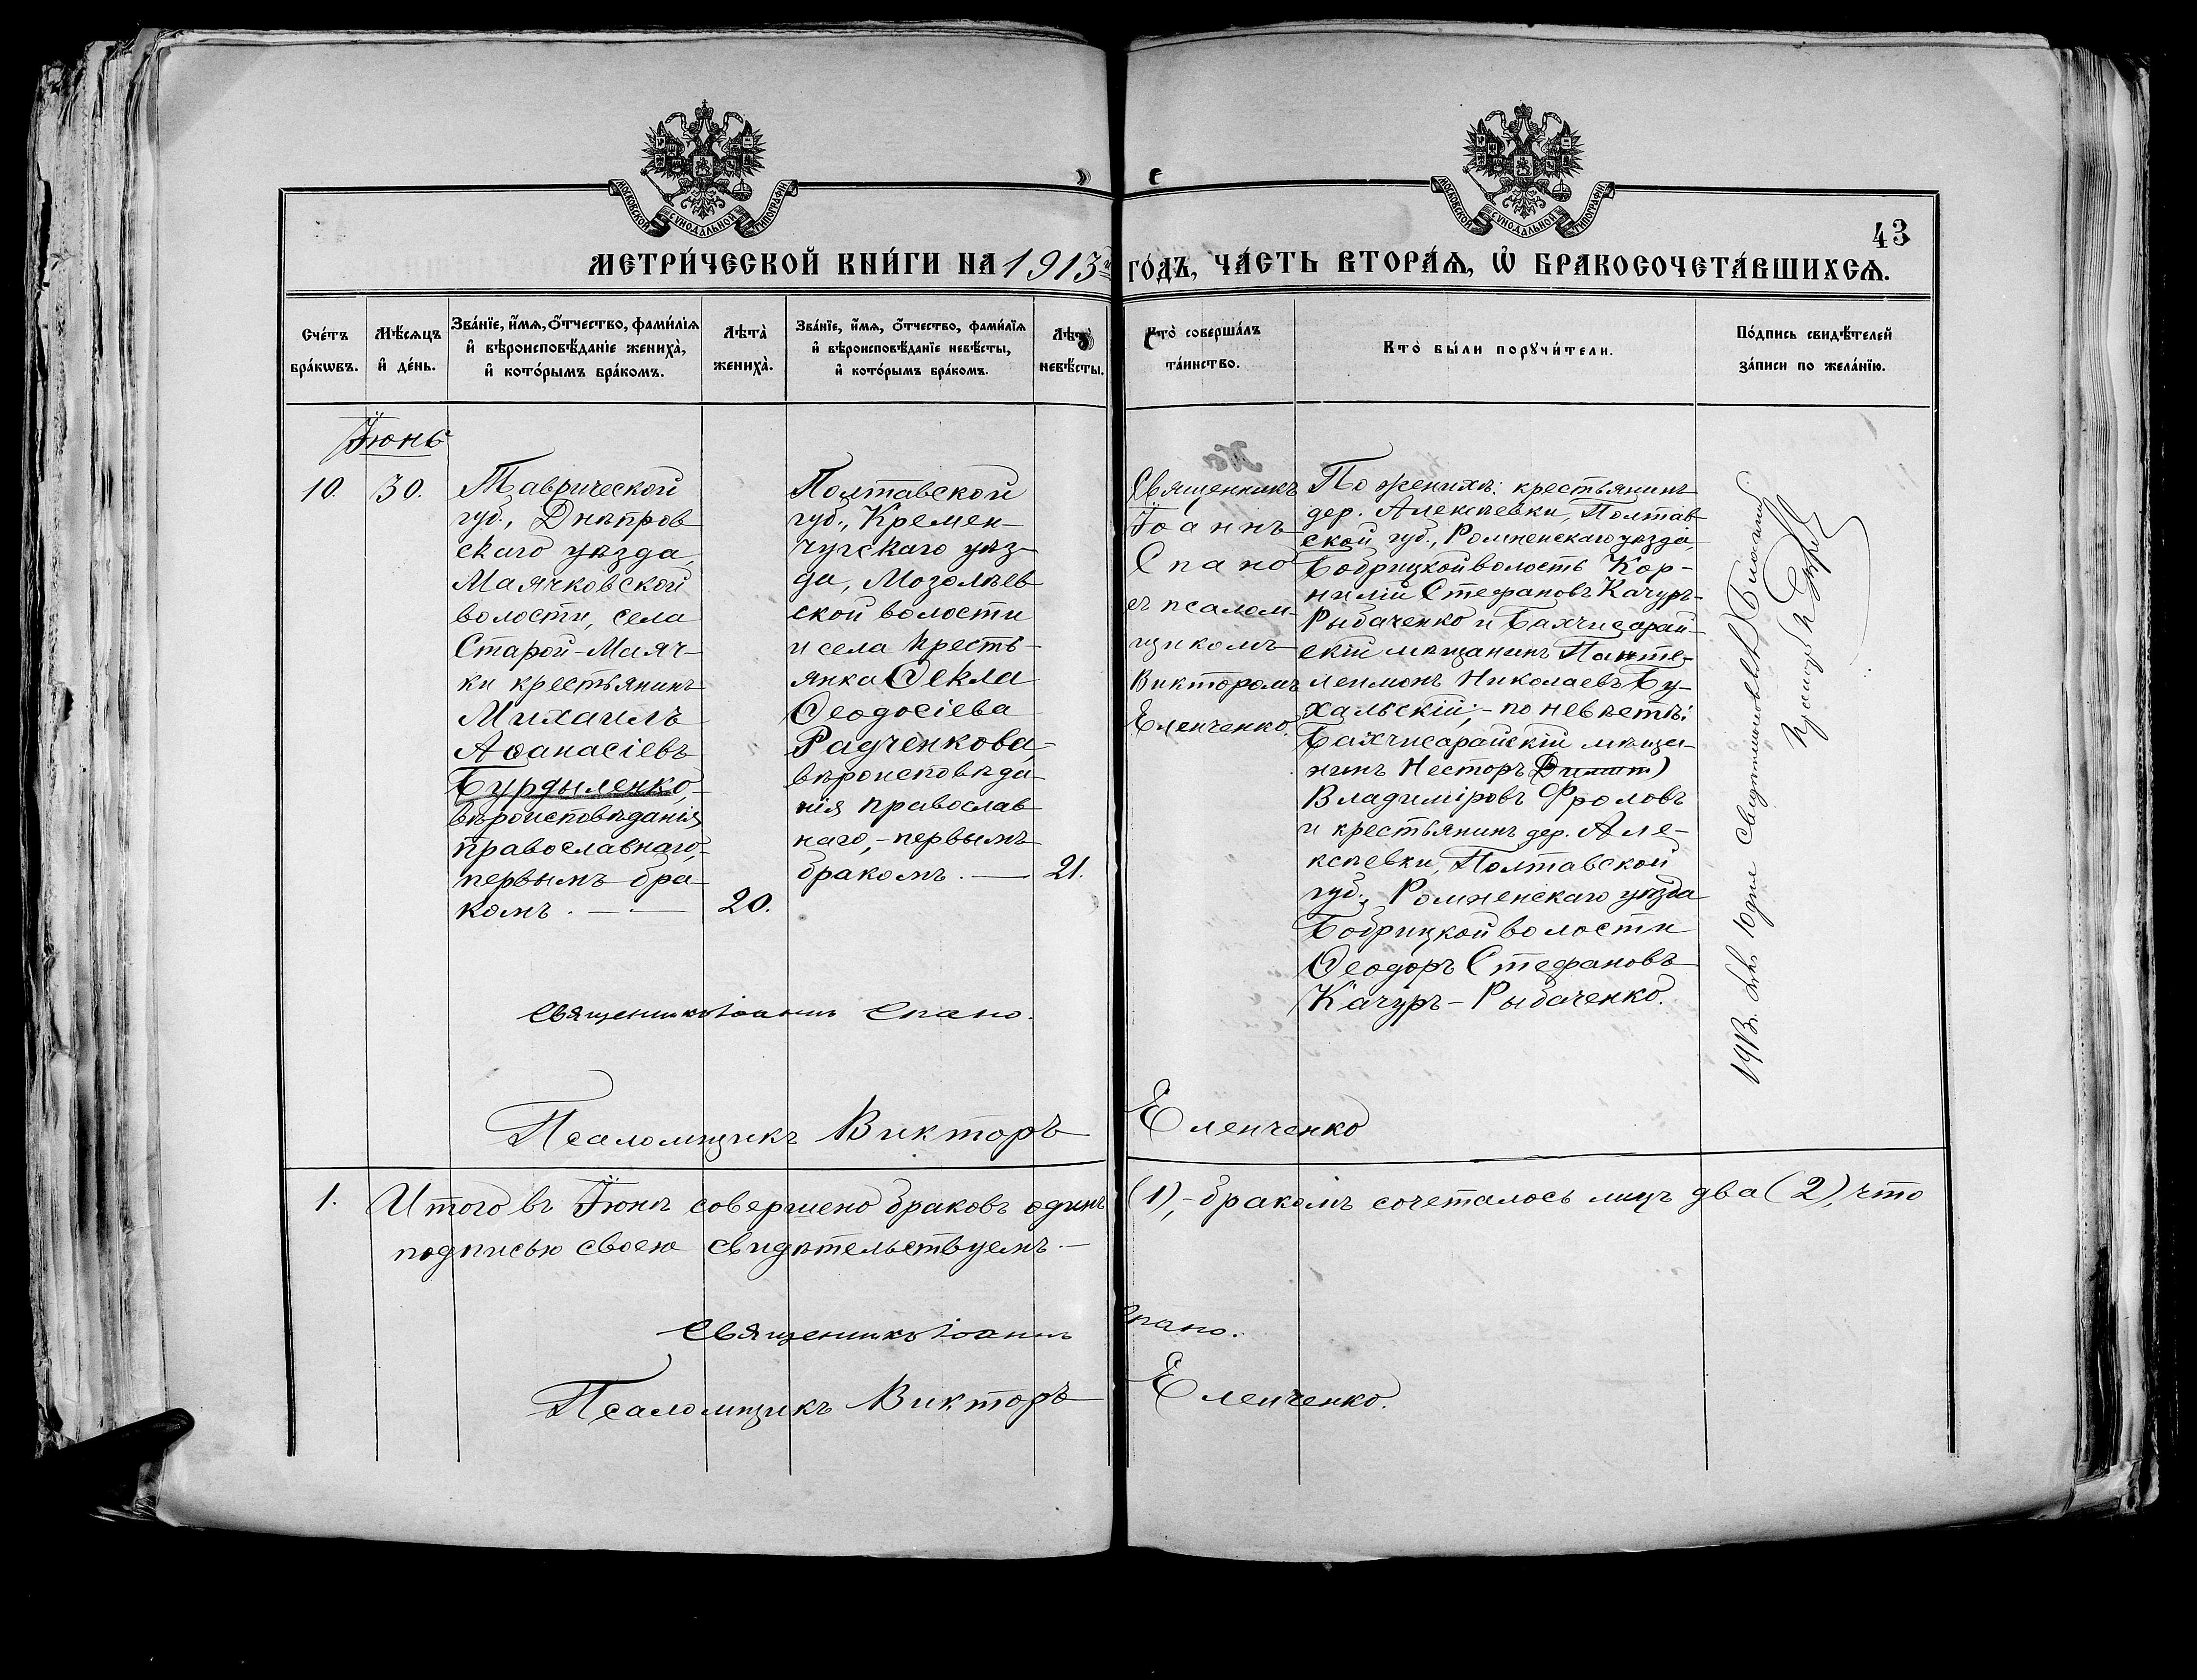 МОСКОВСКОЙ СУНОДАЛЬНОЙ ТИПОГРАФІИ
МОСКОВСКОЙ СУНОДАЛЬНОЙ ТИПОГРАФІИ
43
МЕТРИ́ЧЕСКОЙ КНИ́ГИ НА 1913й ГО́ДЪ, ЧА́СТЬ ВТОРА́Ѧ, Ѡ҆ БРАКОСОЧЕТА́ВШИХСѦ.
Сче́тъ
бра́кѡвъ.
Мѣ́сѧцъ
и҆ де́нь.
Зва́нїе, и҆́мѧ, о҆́тчество, фами́лїѧ
и҆ вѣроисповѣ́данїе жениха̀,
и҆ кото́рымъ бра́комъ.
Лѣта̀
жениха̀.
Зва́нїе, и҆́мѧ, о҆́тчество, фами́лїѧ
и҆ вѣроисповѣ́данїе невѣ́сты,
и҆ кото́рымъ бра́комъ.
Лѣта̀
невѣ́сты.
Кто̀ соверша́лъ
та́инство.
Кто̀ бы́ли порꙋчи́тели.
По́дпись свидѣ́телей
за́писи по жела́нїю.
Іюнь
10.
30.
Таврической
губ., Днѣпров
скаго уѣзда,
Маячковской
волости, села
Старой-Маяч-
ки крестьянинъ
Михаилъ
Аѳанасіевъ
Бурдыленко,-
вѣроисповѣданія
православнаго,-
первымъ бра-
комъ. — —
20.
Полтавской
губ., Кремен-
чугскаго уѣз-
да, Мозолѣев
ской волости
и села кресть-
янка Ѳекла
Ѳеодосіева
Радченкова,-
вѣроисповѣда-
нія православ
наго,-первымъ
бракомъ. —
21.
Священникъ
Іоаннъ
Спано
съ псалом-
щикомъ
Викторомъ
Еленченко.
По женихѣ: крестьянинъ
дер. Алексѣевки, Полтав
ской губ., Роменскаго уѣзда,
Бобрицкой волости Кор-
нилій Стефановъ Качуръ-
Рыбаченко и Бахчисарай-
скій мѣщанинъ Панте-
леимонъ Николаевъ Бу-
хальскій;-по невѣстѣ:
Бахчисарайскій мѣща-
нинъ Несторъ (Димит)
Владиміровъ Фроловъ
и крестьянинъ дер. Але-
ксѣевки, Полтавской
губ., Роменскаго уѣзда
Бобрицкой волости
Ѳеодоръ Стефановъ
Качуръ-Рыбаченко.
1913г. Іюля
Священникъ Іоаннъ Спано.
Псаломщикъ Викторъ Еленченко
1. Итого въ Іюнѣ совершено браковъ одинъ (1),-бракомъ сочеталось лицъ два (2), что
подписью своею свидѣтельствуемъ.—
Священникъ Іоаннъ Спано.
Псаломщикъ Викторъ Еленченко.